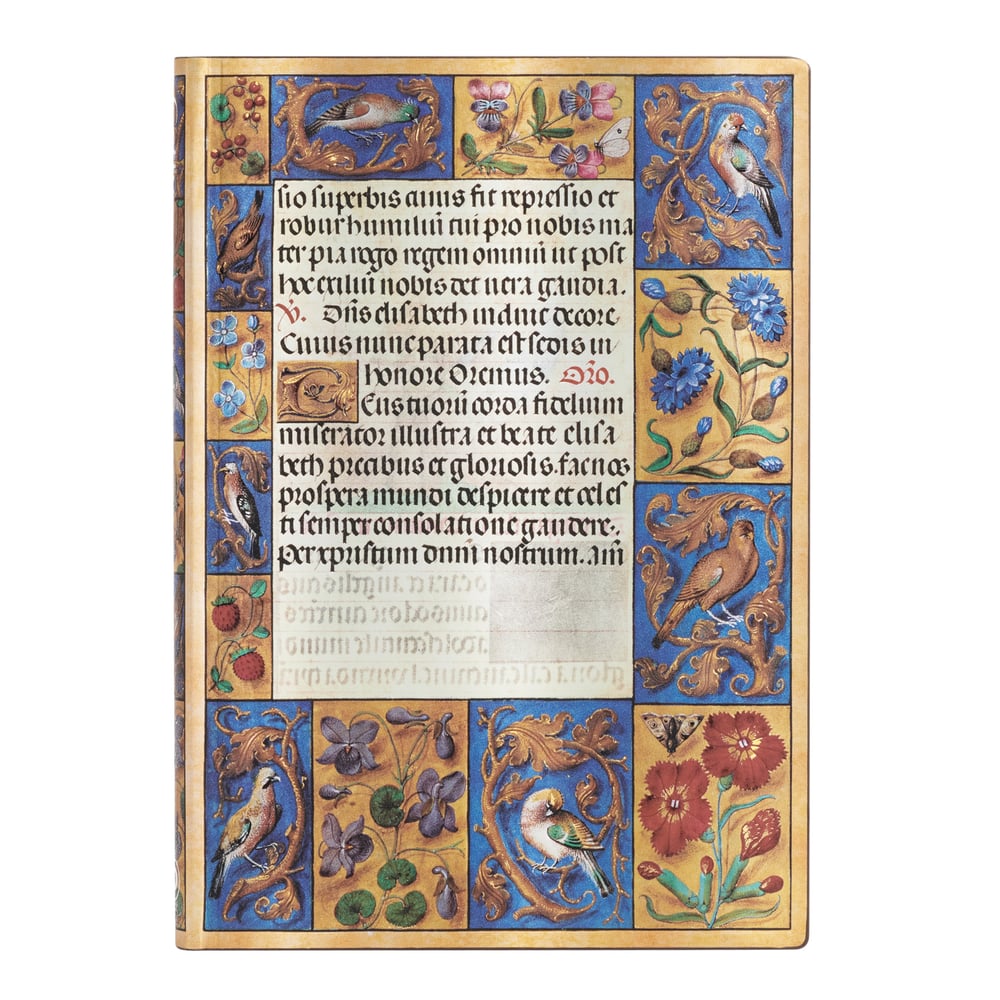 sio superbis cuius fit repressio et
robur humiliū cui pro nobis ma
ter pia rogo regem omniū ut post
hoc exiliū nobis det uera gaudia.
V. Dn̄s elisabeth induit decore
Cuius nunc parata est sedis in
honore Oremus. Oro.
Deus tuorū corda fidelium
miserator illustra et beate elisa
beth precibus et gloriosis. fac nos
prospera mundi despicere et celes
ti semper consolatione gaudere.
Per xpristum dnm̄ nostrum. Am̄